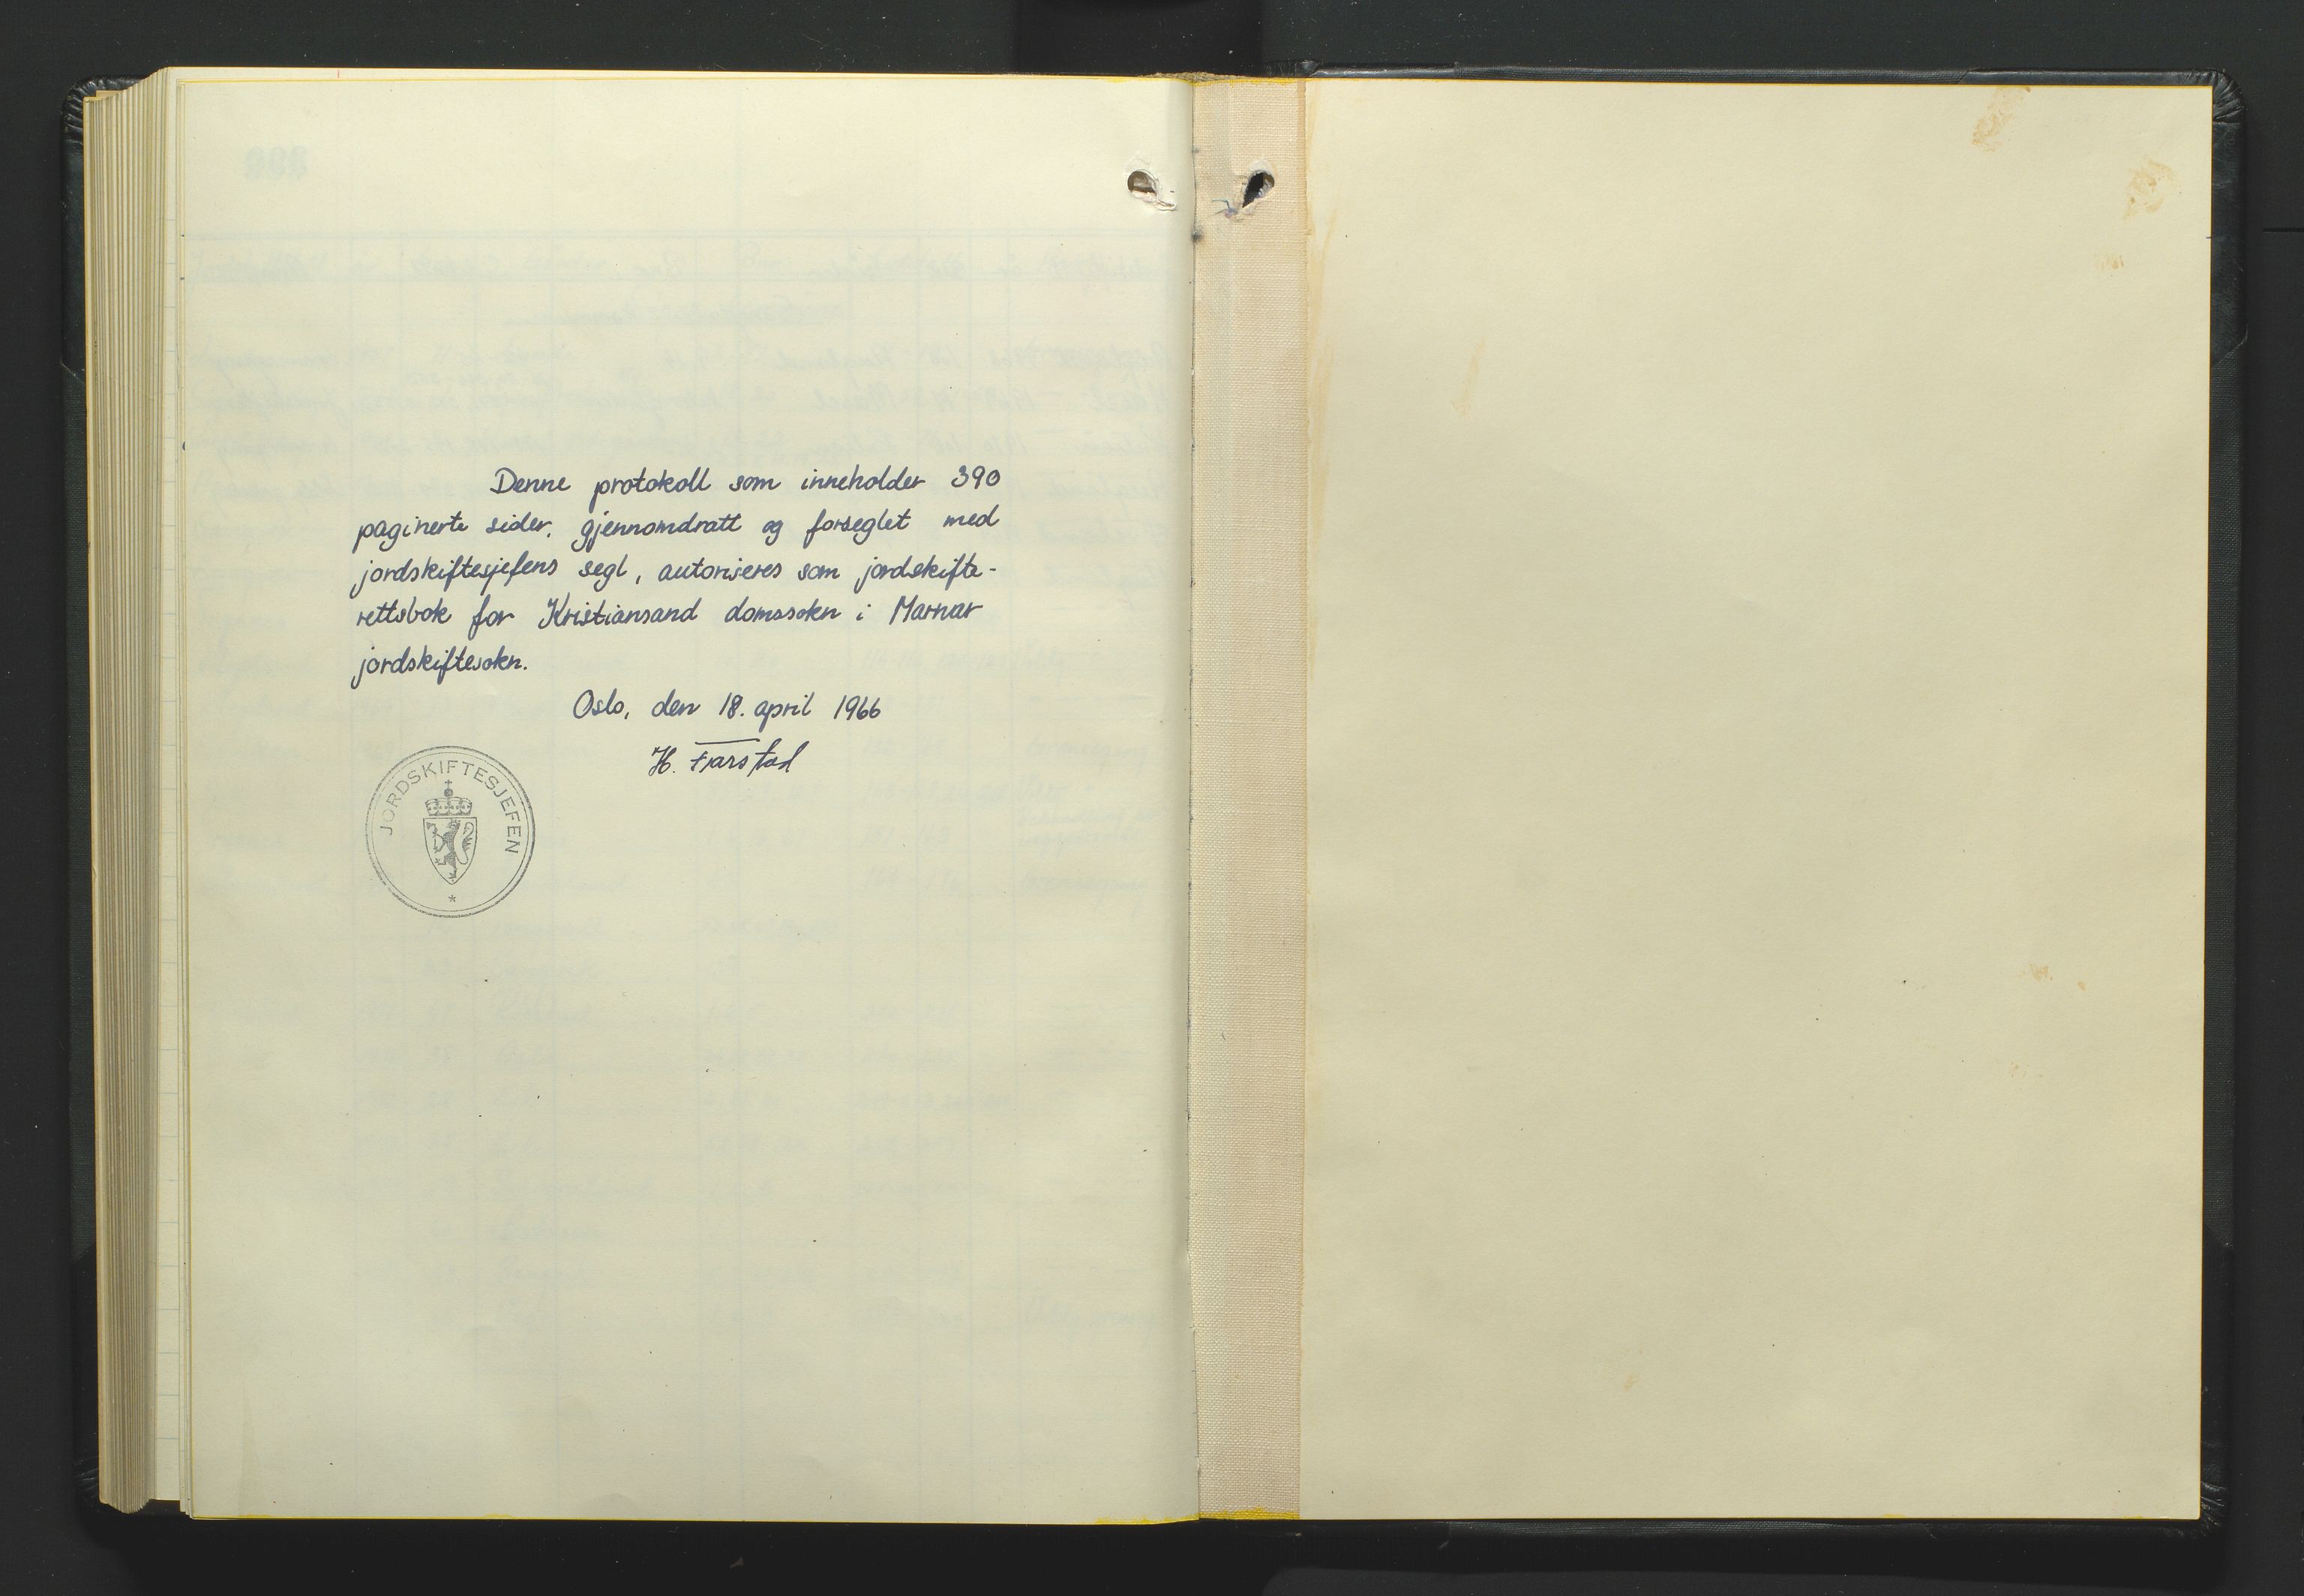 Denne protokoll som inneholder 390
paginerte sider, gjennomdratt og forseglet med
jordskiftesjefens segl, autoriseres som jordskifte-
rettsbok for Kristiansand domssokn i Marnar
jordskiftesokn.
Oslo, den 18. april 1966
H. Farstad
JORDSKIFTESJEFEN